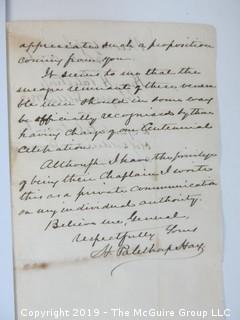 appreciate such a proposition
coming from you.
It seems to me that the
meagre remnant of these venera-
ble men should in some way
be officially recognised by those
having charge of our Centennial
Celebration.
Although I have the privilege
of being their Chaplain I write
this as a private communication
on my individual authority.
Believe me, General,
respectfully Yours
H. Palethorp Hay
Copyright 2019 - The McGuire Group LLC